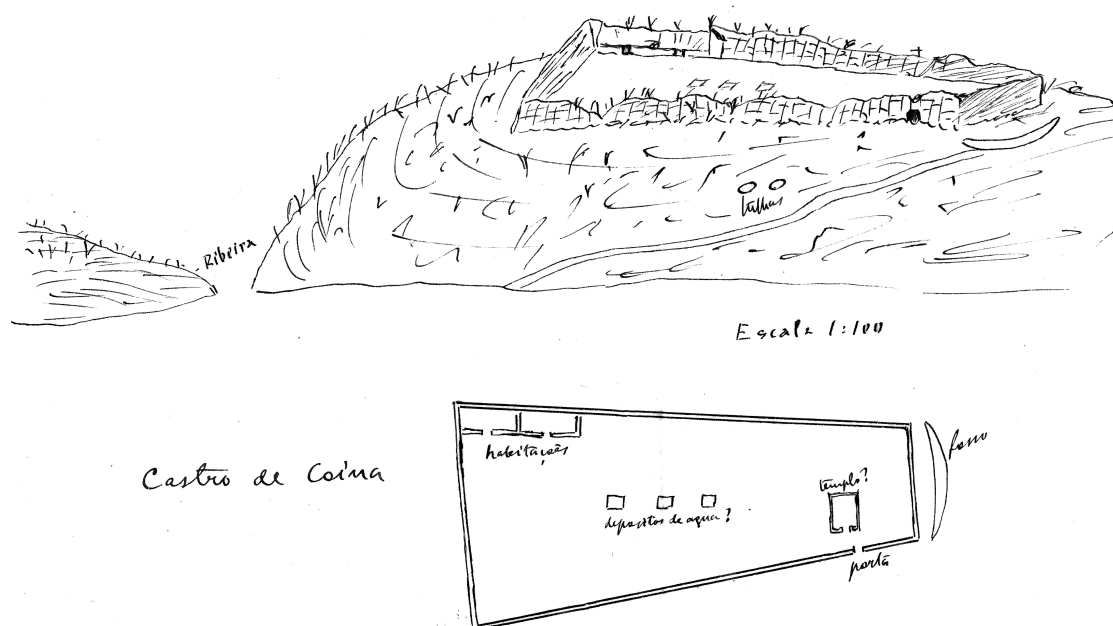 Ribeira
tulhas
Escala 1:100
Castro de Coina
habitações
depositos de agua?
templo?
fosso
porta